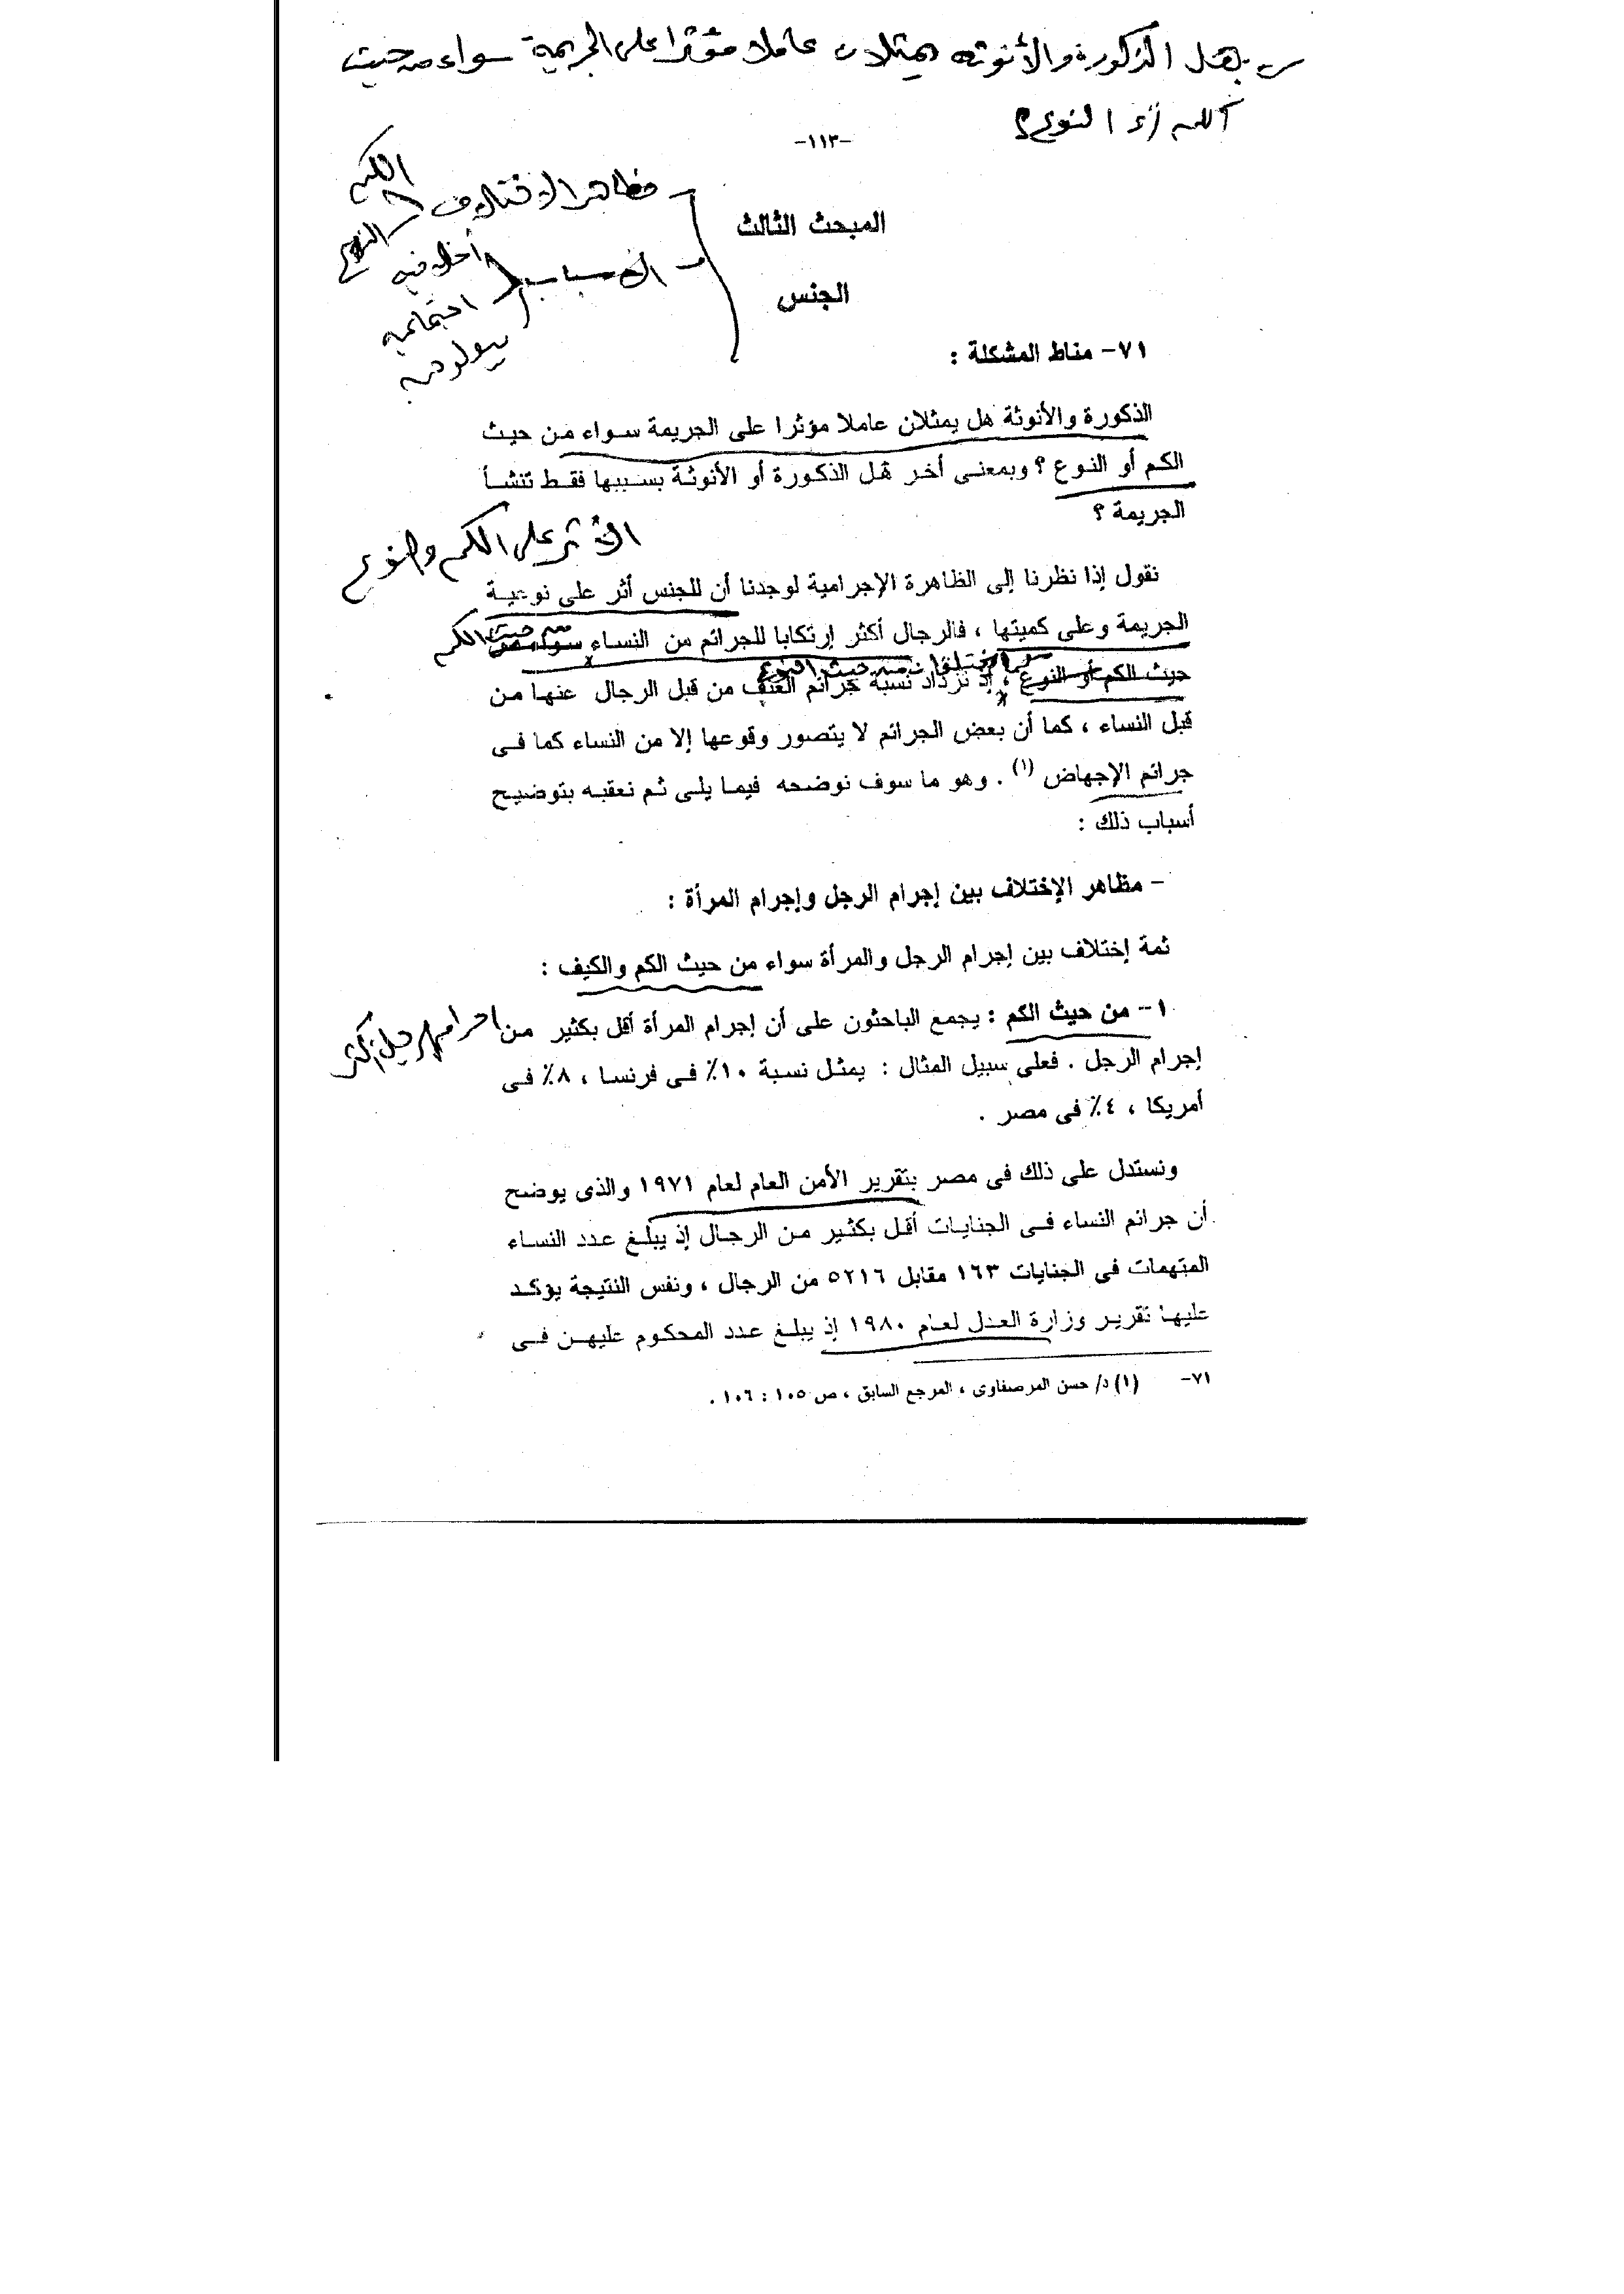 س: هل الذكورة والأنوثه يمثلان عاملا مؤثرا على الجريمة سواء من حيث
الكم أو النوع؟
-١١٣-
مظاهر الاختلاف
الكم
النوع
الأسباب
أخلاقيه
اجتماعيه
بيولوجيه
المبحث الثالث
الجنس
٧١- مناط المشكلة :
الذكورة والأنوثة هل يمثلان عاملا مؤثرا على الجريمة سواء من حيث
الكم أو النوع ؟ وبمعنى أخر هل الذكورة أو الأنوثة بسببها فقط تنشأ
الجريمة ؟
الأثر على الكم والنوع
نقول إذا نظرنا إلى الظاهرة الإجرامية لوجدنا أن للجنس أثر على نوعية
الجريمة وعلى كميتها ، فالرجال أكثر إرتكابا للجرائم من النساء سواء من
من حيث الكم
حيث الكم أو النوع ، إذ تزداد نسبة جرائم العنف من قبل الرجال عنها من
قبل النساء ، كما أن بعض الجرائم لا يتصور وقوعها إلا من النساء كما فى
جرائم الإجهاض (١) . وهو ما سوف نوضحه فيما يلى ثم نعقبه بتوضيح
أسباب ذلك :
- مظاهر الإختلاف بين إجرام الرجل وإجرام المرأة :
ثمة إختلاف بين إجرام الرجل والمرأة سواء من حيث الكم والكيف :
١- من حيث الكم : يجمع الباحثون على أن إجرام المرأة أقل بكثير من
اجرام الرجل أكثر
إجرام الرجل . فعلى سبيل المثال : يمثل نسبة ١٠٪ فى فرنسا ، ٨٪ فى
أمريكا ، ٤٪ فى مصر .
ونستدل على ذلك فى مصر بتقرير الأمن العام لعام ١٩٧١ والذى يوضح
أن جرائم النساء فى الجنايات أقل بكثير من الرجال إذ يبلغ عدد النساء
المتهمات فى الجنايات ١٦٣ مقابل ٥٢١٦ من الرجال ، ونفس النتيجة يؤكد
عليها تقرير وزارة العدل لعام ١٩٨٠ إذ يبلغ عدد المحكوم عليهن فى
٧١- (١) د/ حسن المرصفاوى ، المرجع السابق ، ص ١٠٥ : ١٠٦ .